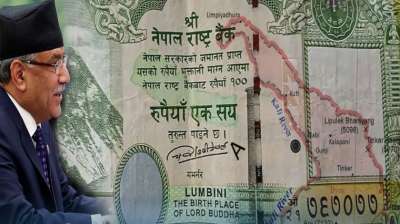 श्री
नेपाल राष्ट्र बैंक
नेपाल सरकारको जमानत प्राप्त
यसको रुपैयाँ भुक्तानी माग्न आएमा
नेपाल राष्ट्र बैंकबाट रुपैयाँ १००
रुपैयाँ एक सय
तुरुन्त पाइनेछ।
गभर्नर
LUMBINI
THE BIRTH PLACE
OF LORD BUDDHA
Limpiyadhura
Kuti
Kali River
Gabi
Kalapani
Lipulek Bhanjyang
(5098)
Tinker
Tinker
७६७०७७